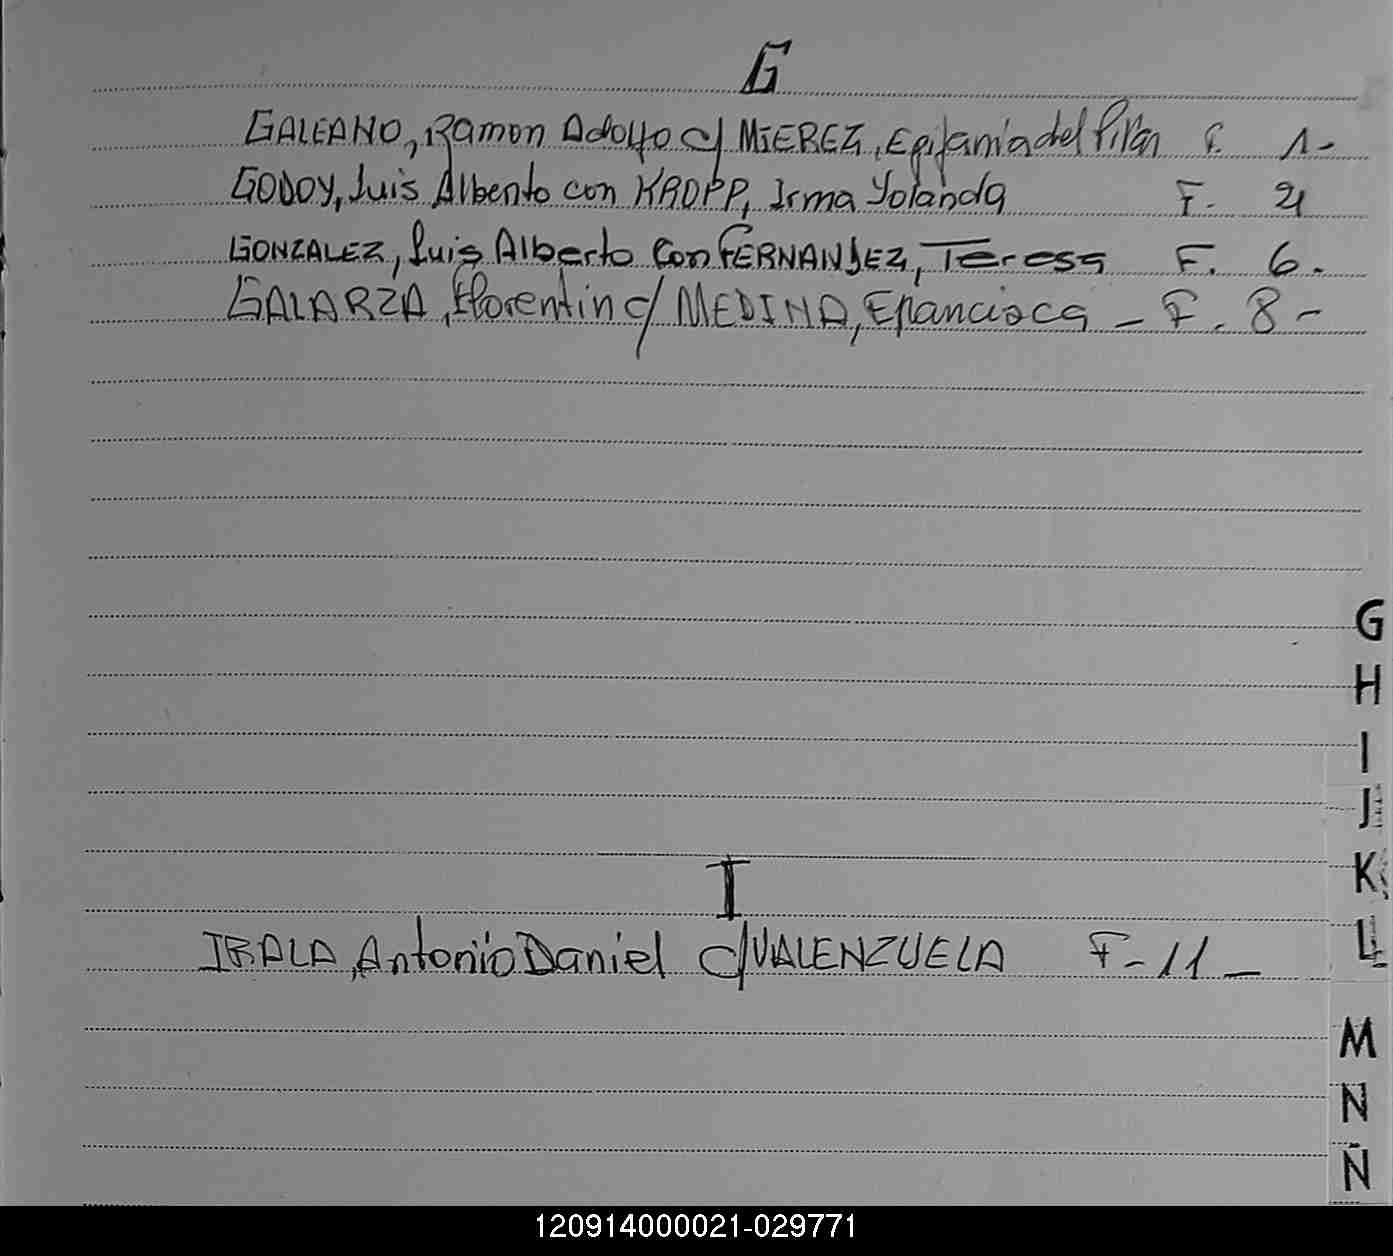 G
GALEANO, Ramon Adolfo c/ MIEREZ, Epifania del Pilar F. 1-
GODOY, Luis Alberto con KROPP, Irma Yolanda F. 4
GONZALEZ, Luis Alberto Con FERNANDEZ, Teresa F. 6.
GALARZA, Florentin c/ MEDINA, Francisca - F. 8 -
G
H
I
J
K
L
I
IRALA, Antonio Daniel c/VALENZUELA F- 11 -
M
N
Ñ
120914000021-029771